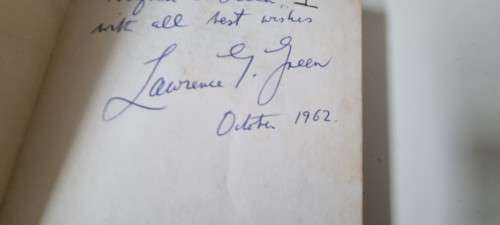 with all best wishes
Lawrence G. Green
October 1962.